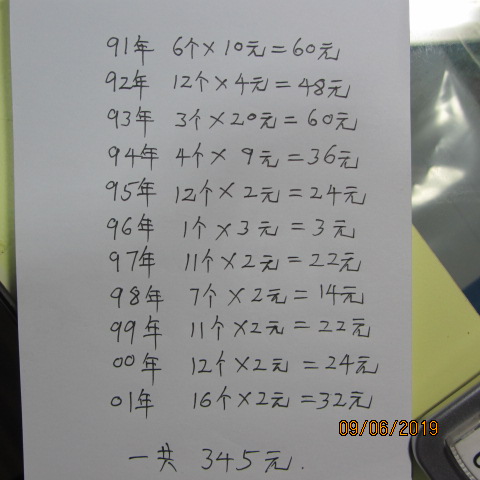 91年 6个×10元=60元
92年 12个×4元=48元
93年 3个×20元=60元
94年 4个×9元=36元
95年 12个×2元=24元
96年 1个×3元=3元
97年 11个×2元=22元
98年 7个×2元=14元
99年 11个×2元=22元
00年 12个×2元=24元
01年 16个×2元=32元
09/06/2019
一共 345元.